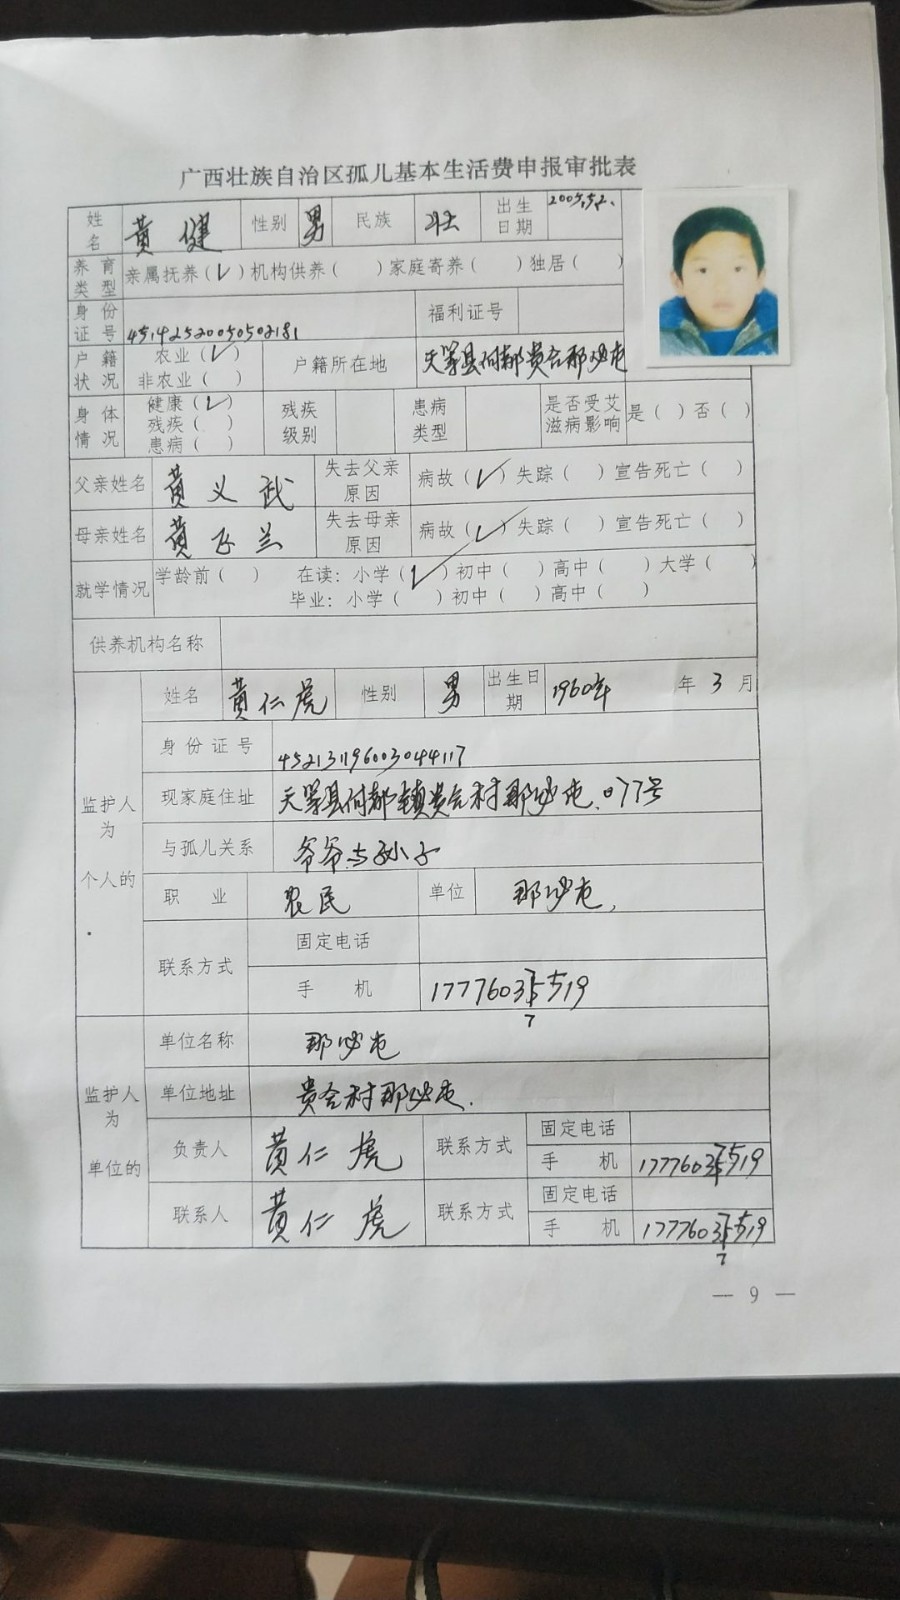 广西壮族自治区孤儿基本生活费申报审批表
姓名 黄健 性别 男 民族 壮 出生日期 2005,5,2.
养育类型 亲属抚养(√)机构供养( )家庭寄养( )独居( )
身份证号 45142520050502181 福利证号
户籍状况 农业(√) 非农业( ) 户籍所在地 天等县向都贵合那必屯
身体情况 健康(√) 残疾( ) 患病( ) 残疾级别 患病类型 是否受艾滋病影响 是( )否( )
父亲姓名 黄义武 失去父亲原因 病故(√)失踪( )宣告死亡( )
母亲姓名 黄 兰 失去母亲原因 病故(√)失踪( )宣告死亡( )
就学情况 学龄前( ) 在读:小学(√)初中( )高中( )大学( )
毕业:小学( )初中( )高中( )
供养机构名称
监护人为个人的
姓名 黄仁虎 性别 男 出生日期 1960年 年 3 月
身份证号 452131196003044117
现家庭住址 天等县向都镇贵合村那必屯.077号
与孤儿关系 爷爷与孙子
职业 农民 单位 那必屯,
联系方式 固定电话
手机 17776035519
7
监护人为单位的
单位名称 那必屯
单位地址 贵合村那必屯.
负责人 黄仁虎 联系方式 固定电话
手机 1777603 5519
联系人 黄仁虎 联系方式 固定电话
手机 1777603 5519
7
— 9 —